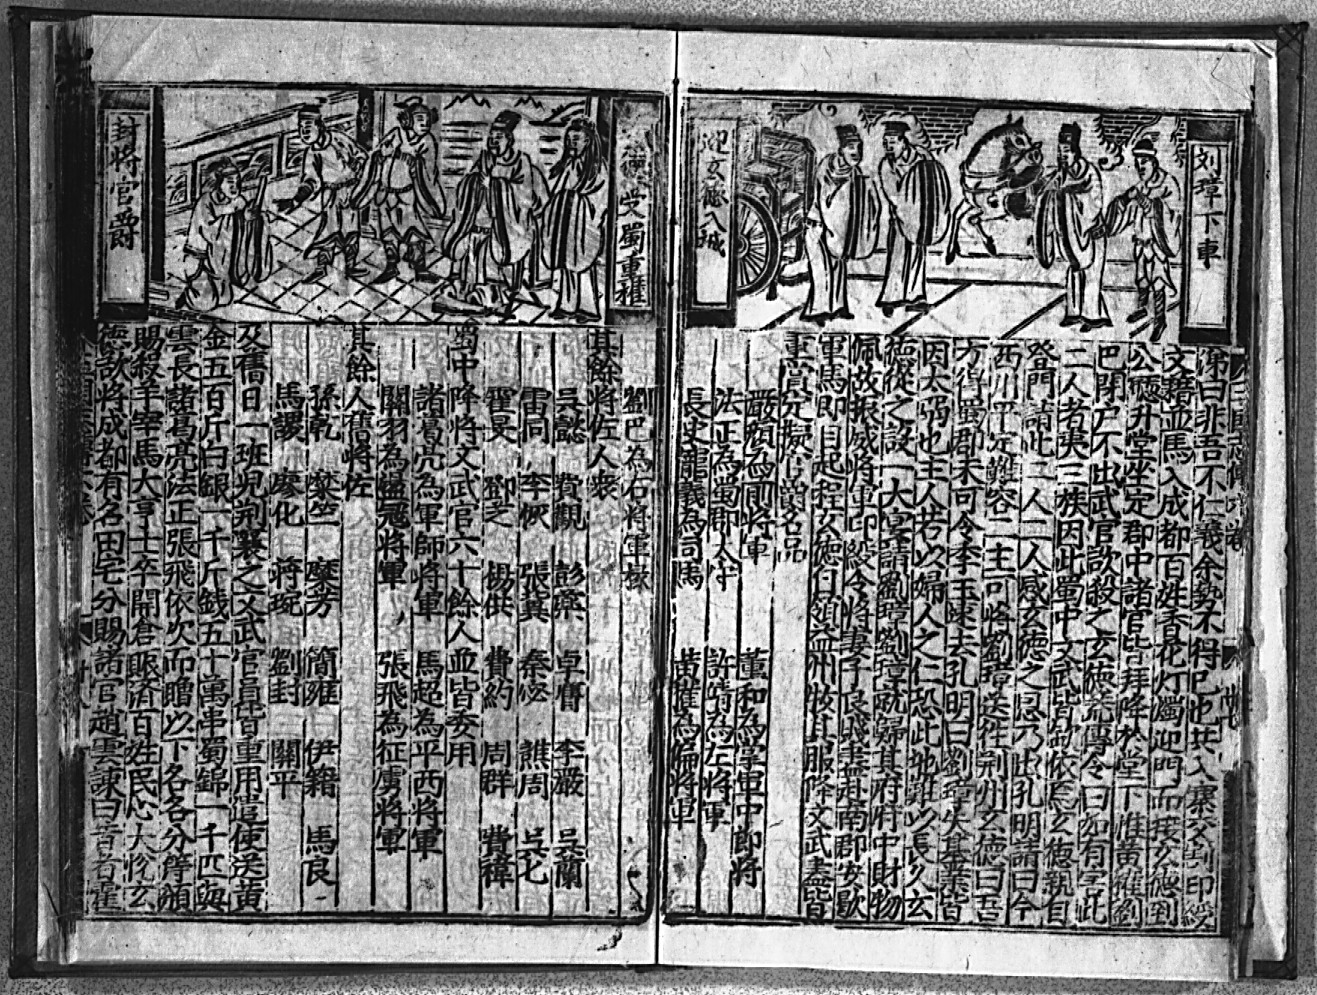 刘璋下車
迎玄德入城
涕曰非吾不仁義奈勢不得已也共入寨交割印綬
文籍並馬入成都百姓香花灯燭迎門而接玄德到
公廳升堂坐定郡中諸官皆拜降於堂下惟黃權劉
巴閉户不出武官欲殺之玄德慌傳令曰如有害此
二人者夷三族因此蜀中文武皆欲依焉玄德親自
登門請此二人二人感玄德之恩乃出孔明請曰今
西川平定難容二主可將劉璋送往荆州玄德曰吾
方得蜀郡未可令季玉速去孔明曰劉璋失基業皆
因太弱也主人若以婦人之仁恐此地難以長久玄
德從之設一大宴請劉璋劉璋就歸其府府中財物
佩故振威將軍印綬令將妻子良賤盡赴南郡安歇
軍馬即日起程玄德自領益州牧其服降文武盡皆
重賞定擬官爵名品
嚴顏為前將軍 董和為掌軍中郎將
法正為蜀郡太守 許靖為左將軍
長史龐義為司馬 黃權為偏將軍
受蜀重權
封將官爵
劉巴為右將軍掾
其餘將佐人衆
吳懿 費觀 彭羕 卓膺 李嚴 吳蘭
雷同 李恢 張翼 秦宓 譙周 呂乂
霍旻 鄧芝 楊供 費約 周群 費禕
蜀中降將文武官六十餘人並皆委用
諸葛亮為軍師將軍 馬超為平西將軍
關羽為盪寇將軍 張飛為征虜將軍
其餘人舊將佐
孫乾 糜竺 糜芳 簡雍 伊籍 馬良
馬謖 廖化 蔣琬 劉封 關平
及舊日一班兒荆襄之文武官員皆重用遣使送黃
金五百斤白銀一千斤錢五十萬串蜀錦一千匹與
雲長諸葛亮法正張飛依次而贈以下各各分等頒
賜殺羊宰馬大亨士卒開倉賑濟百姓民心大悅玄
德欲將成都有名田宅分賜諸官趙雲諫曰昔者霍